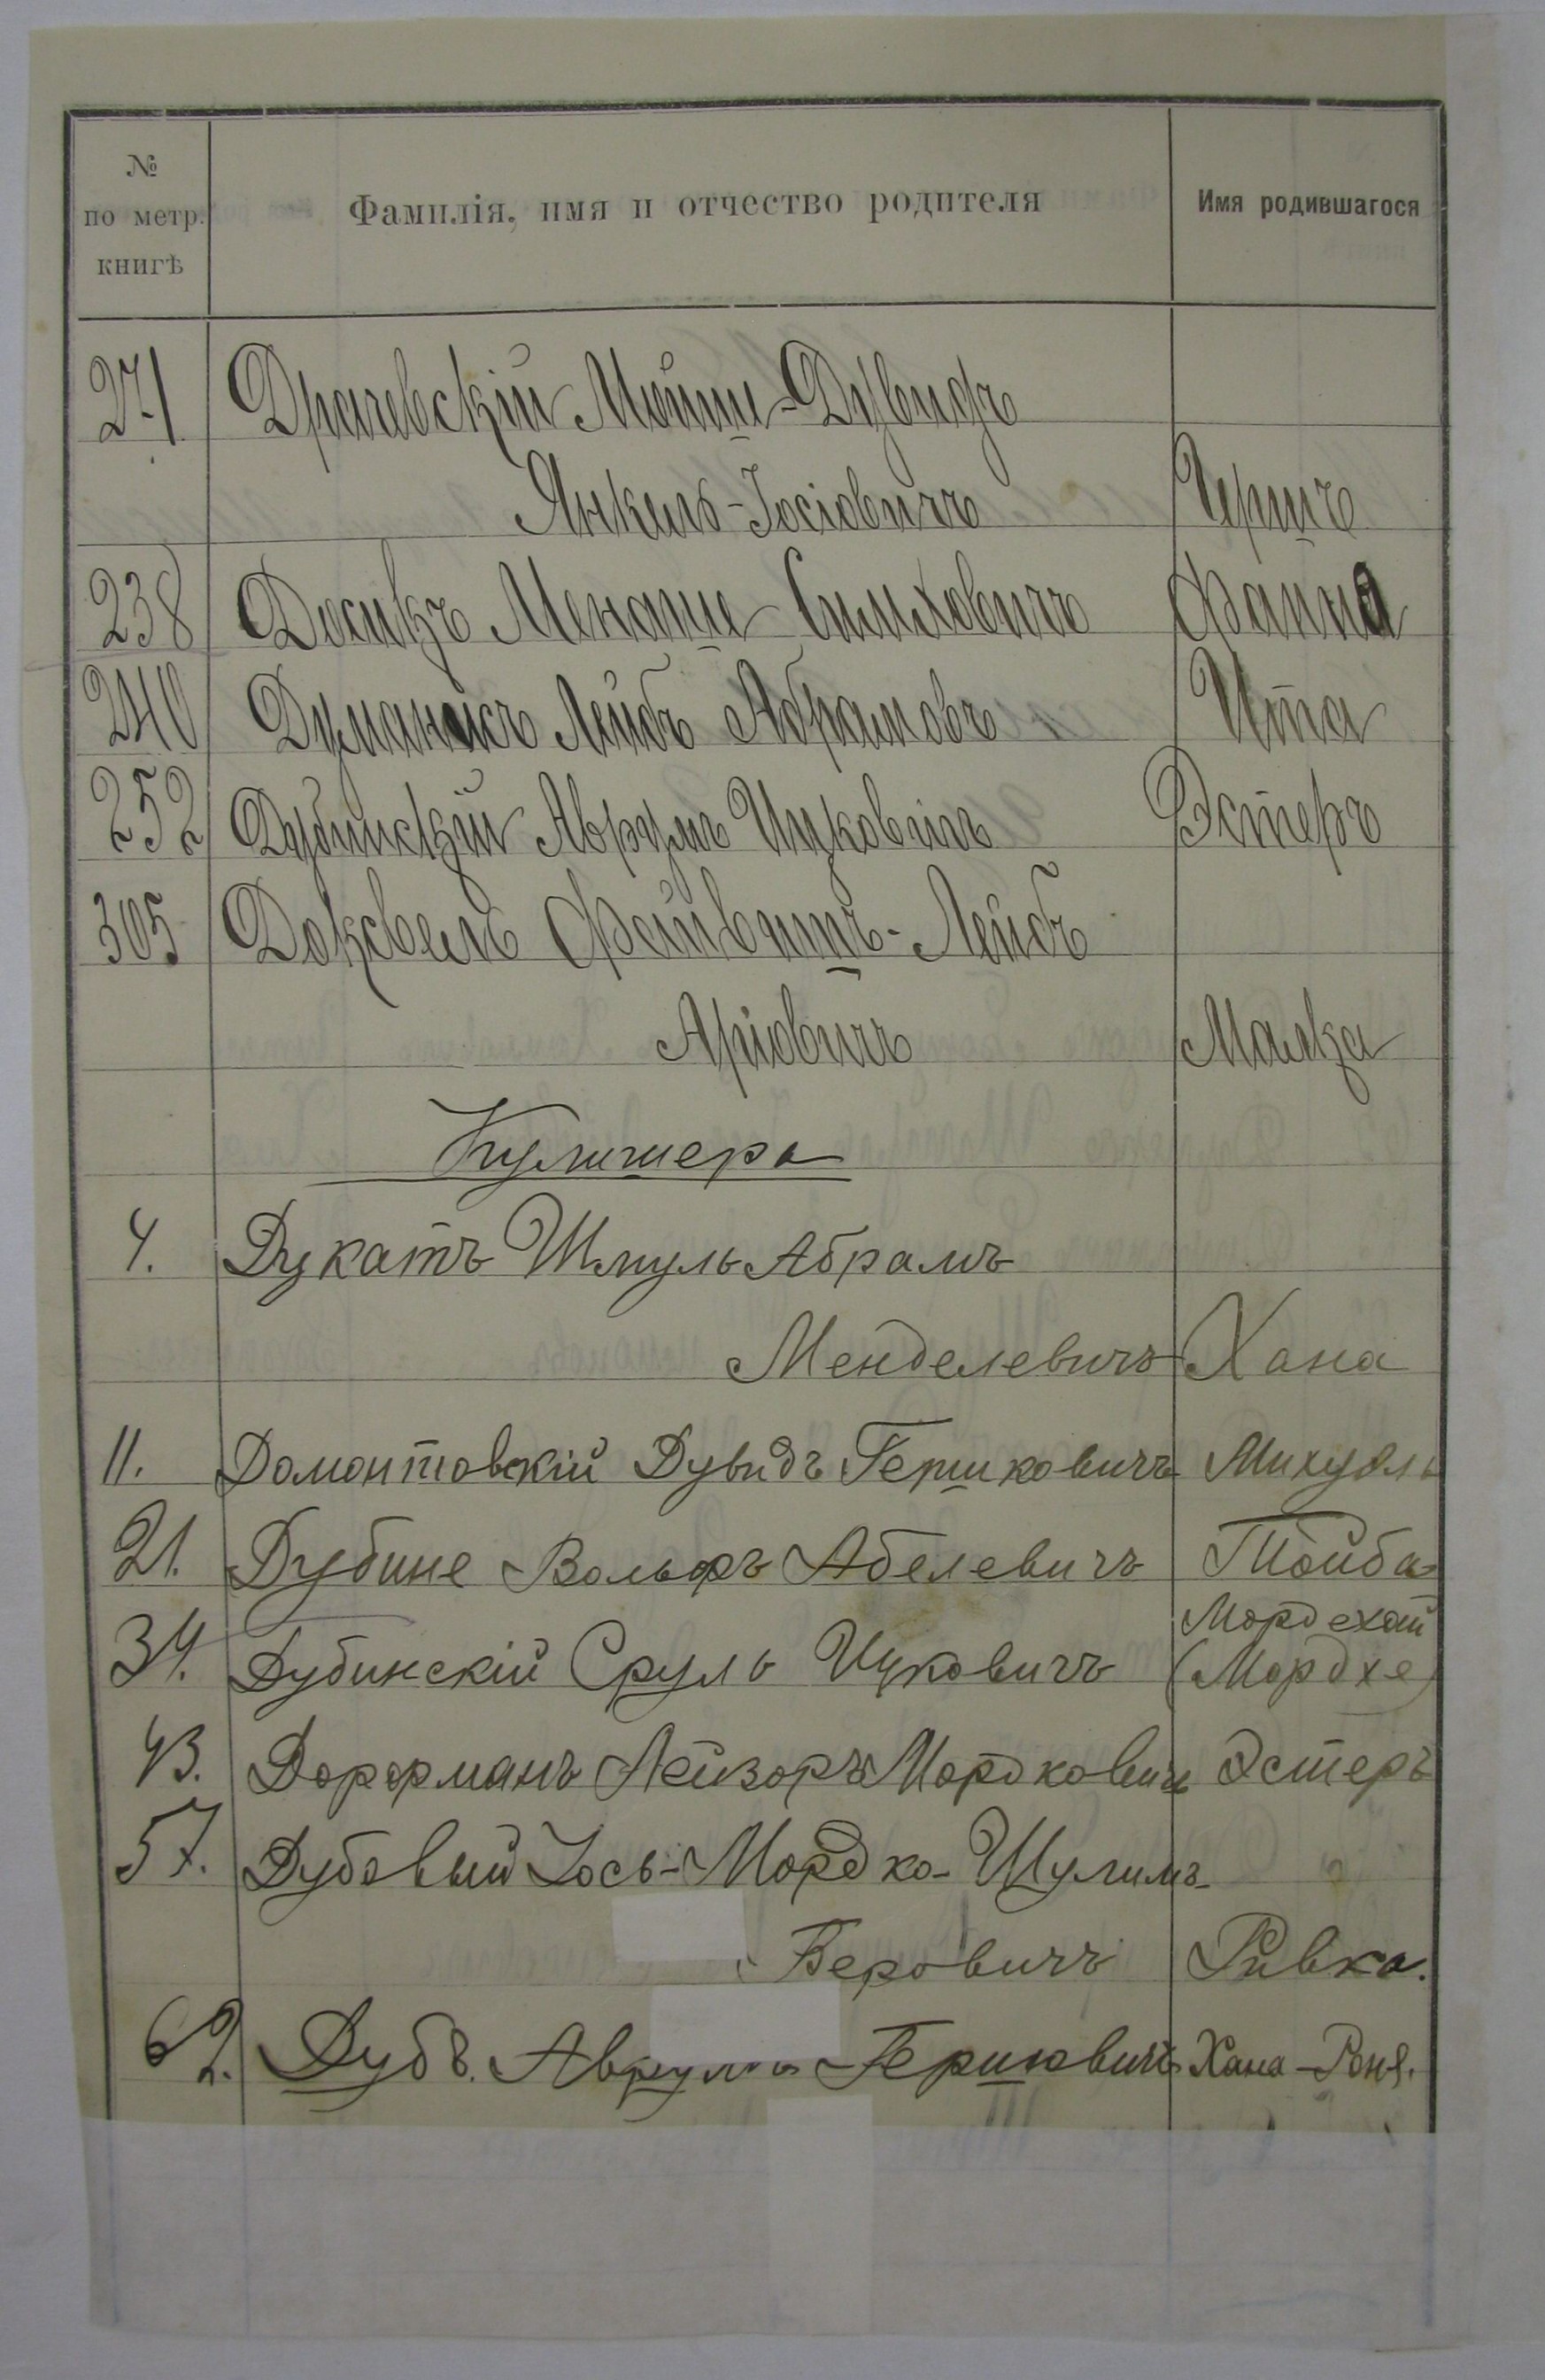 № по метр. книгѣ
Фамилія, имя и отчество родителя
Имя родившагося
271 Драчевскій Мойше-Дувидъ
Янкель-Іосіовичъ Гершъ
238 Досикъ Менаше Симховичъ Фанна
240 Думанисъ Лейбъ Абрамовъ Ита
252 Дубинскій Аврумъ Ицковичъ Эстеръ
305 Доксвелъ Фейвишъ-Лейбъ
Аріовичъ Малка
Кульшера
4. Дукатъ Шмуль Абрамъ
Менделевичъ Хана
11. Домонтовскій Дувидъ Гершковичъ Михуэль
21. Дубине Вольфъ Абелевичъ Тойба
34. Дубинскій Сруль Ицковичъ Мордехай
(Мордхе)
43. Дорфманъ Лейзоръ Мордковичъ Эстеръ
57. Дубовый Іось-Мордко-Шулимъ
Беровичъ Ривка.
62. Дубъ. Аврумъ Гершовичъ Хана-Роня.